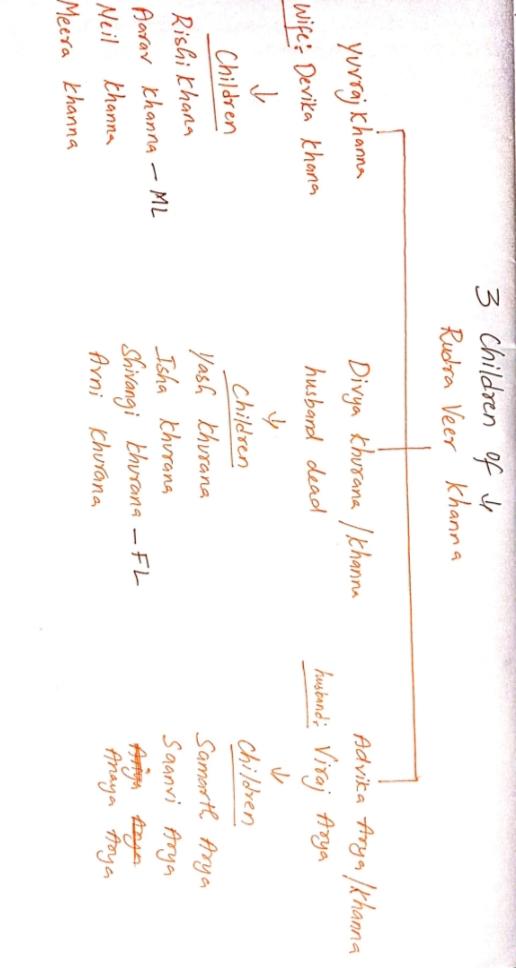 3 Children of ↓
Rudra Veer Khanna
Yuvraj Khanna
Wife: Devika Khana
↓
Children
Rishi Khana
Aarav Khanna - ML
Neil Khanna
Meera Khanna
Divya Khurana / Khanna
husband dead
↓
Children
Yash Khurana
Isha Khurana
Shivangi Khurana - FL
Arni Khurana
Advika Arya / Khanna
husband: Viraj Arya
↓
Children
Samarth Arya
Saanvi Arya
Anaya Arya